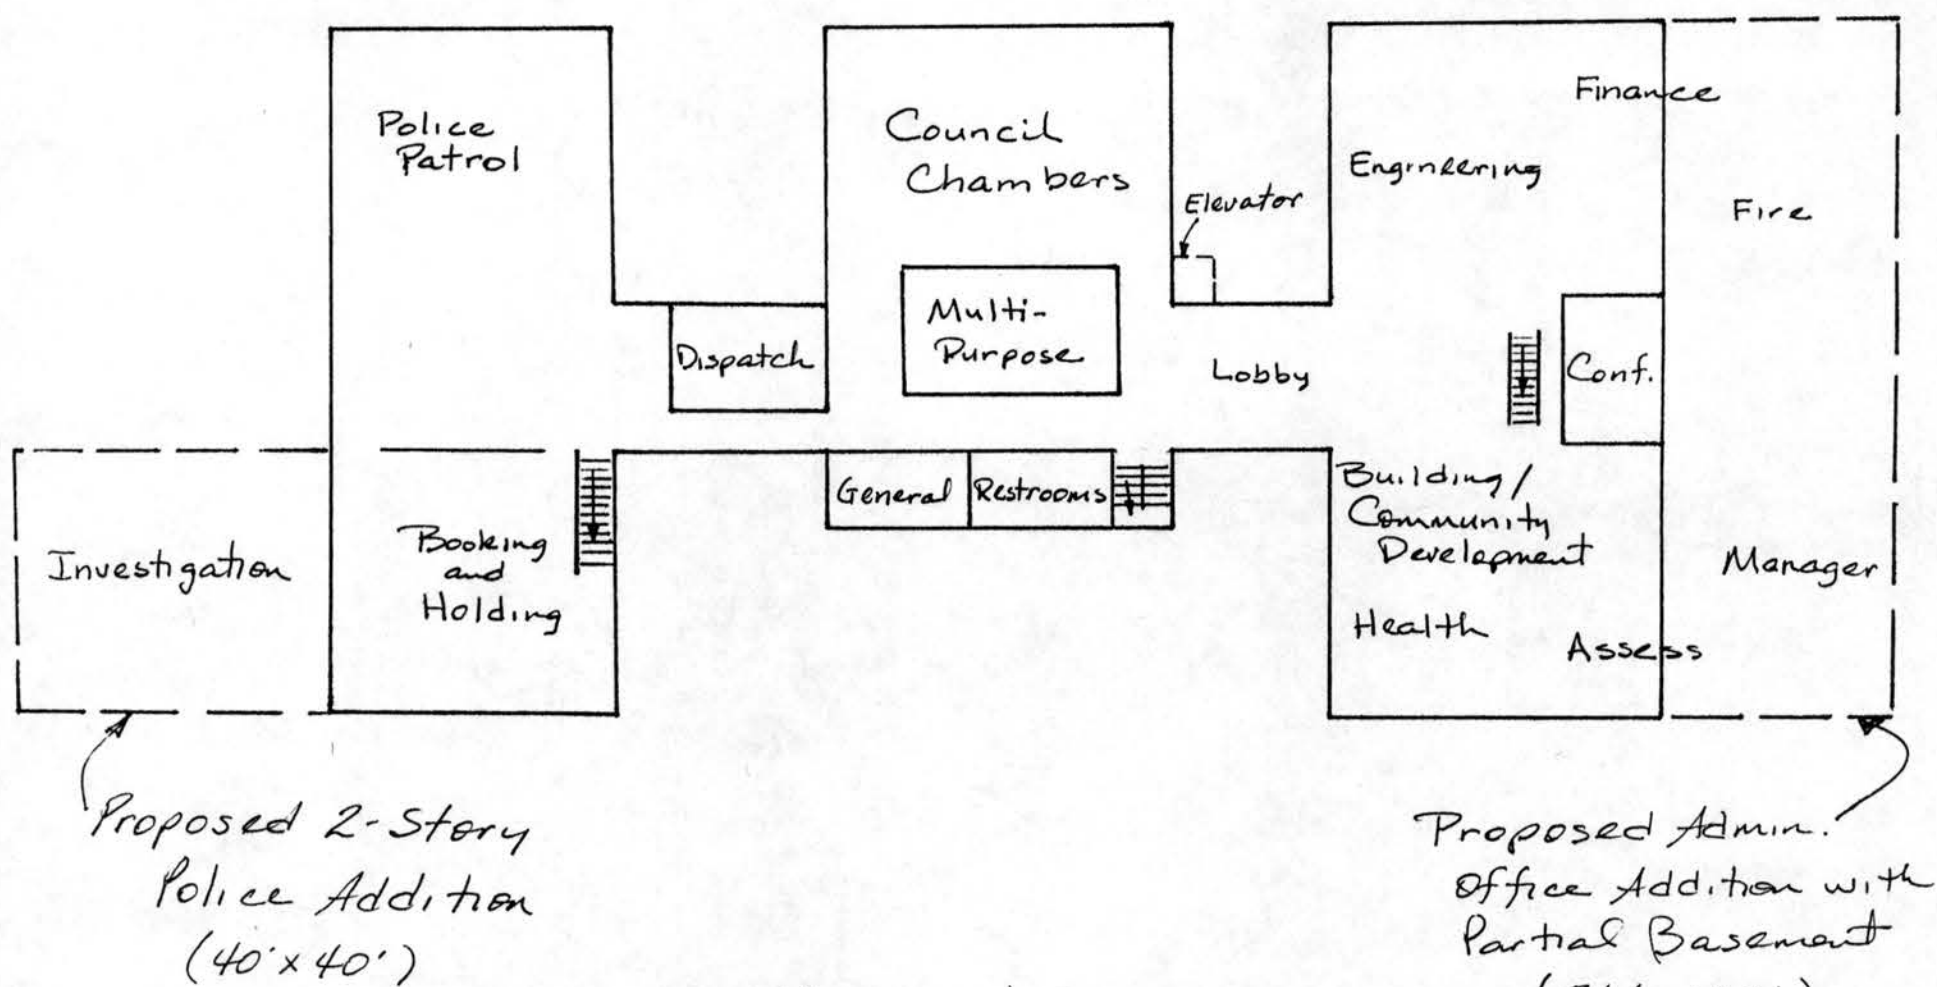 Police
Patrol
Council
Chambers
Elevator
Engineering
Finance
Fire
Multi-
Purpose
Dispatch
Lobby
Conf.
Investigation
Booking
and
Holding
General
Restrooms
Building/
Community
Development
Health
Assess
Manager
Proposed 2-Story
Police Addition
(40'x40')
Proposed Admin.
Office Addition with
Partial Basement